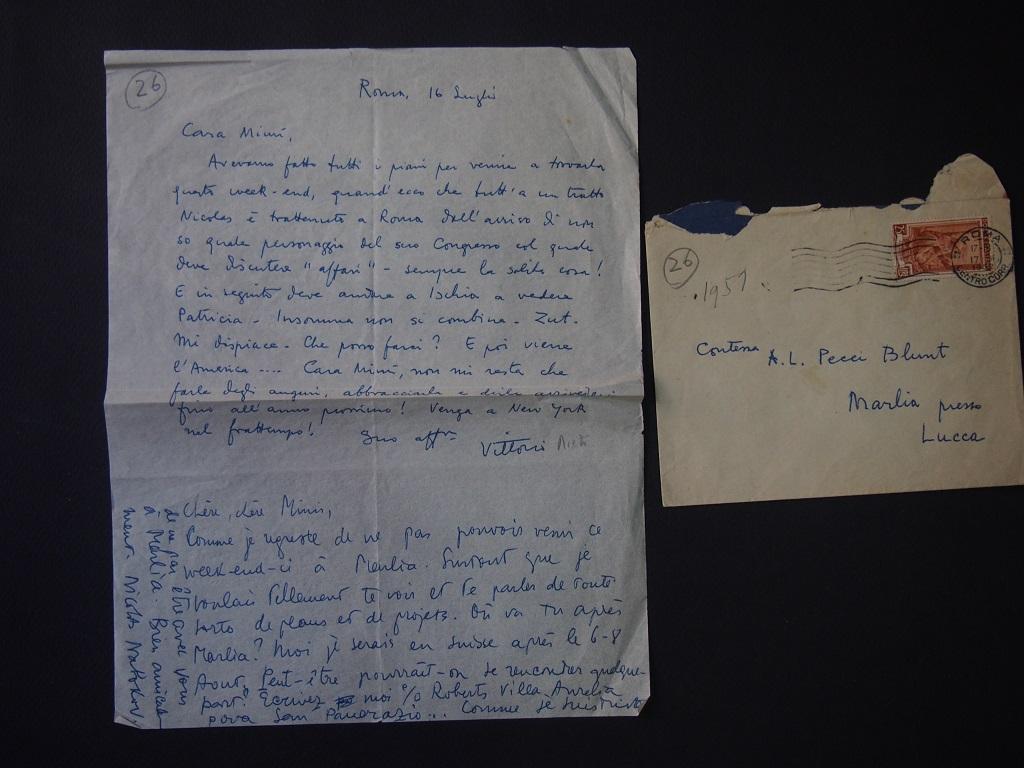 26
Roma, 16 Luglio
Cara Mimi,
Avevamo fatto tutti i piani per venire a trovarla
questo week-end, quand'ecco che tutt'a un tratto
Nicolas è trattenuto a Roma dall'arrivo di non
so quale personaggio del suo Congresso col quale
deve discutere "affari" - sempre la solita cosa!
E in seguito deve andare a Ischia a vedere
Patricia - Insomma non si combina - Zut.
Mi dispiace - Che posso farci? E poi viene
l'America .... Cara Mimi, non mi resta che
farle degli auguri, abbracciarla e dirle arrivederci
fino all'anno prossimo! Venga a New York
nel frattempo! Suo affmo
Vittorio Rieti
Chère, chère Mimi,
Comme je regrette de ne pas pouvoir venir ce
week-end-ci à Marlia. Surtout que je
voulais tellement te voir et te parler de toute
sorte de plans et de projets. Où va tu après
Marlia? Moi je serais en Suisse après le 6-8
Aout. Peut-être pourrait-on se rencontrer quelque-
part. Ecrivez moi c/o Roberts Villa Aurelia
Porta San Pancrazio... Comme je suis triste
de ne pas être avec vous
à Marlia. Bien amicale-
ment. Nicolas Nabokov
26
.1951.
ROMA
17
CENTRO CORR
Contessa A.L. Pecci Blunt
Marlia presso
Lucca